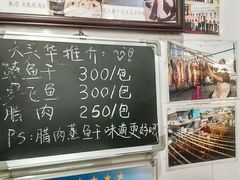 大头华推介:
鱼干 300/包
飞鱼 300/包
腊肉 250/包
PS:腊肉蒸鱼干味道更好哦